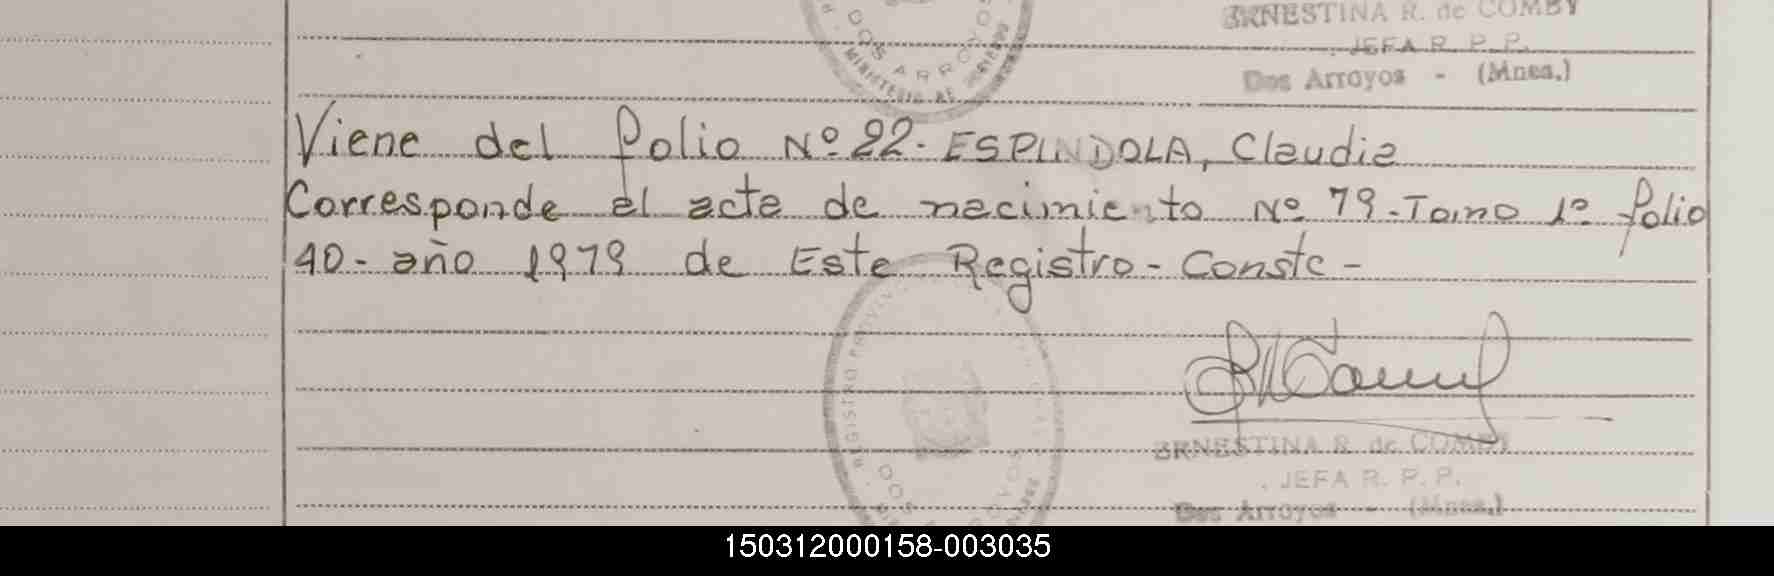 ERNESTINA R. de COMBY
JEFA R. P. P.
Dos Arroyos - (Mnes.)
DOS ARROYOS
Viene del folio Nº 22. ESPINDOLA, Claudia
Corresponde al acta de nacimiento Nº 79. Tomo 1º folio
40 - año 1979 de Este Registro - Conste -
REGISTRO PROVINC
DOS
ERNESTINA R. de COMBY
JEFA R. P. P.
Dos Arroyos - (Mnes.)
150312000158-003035